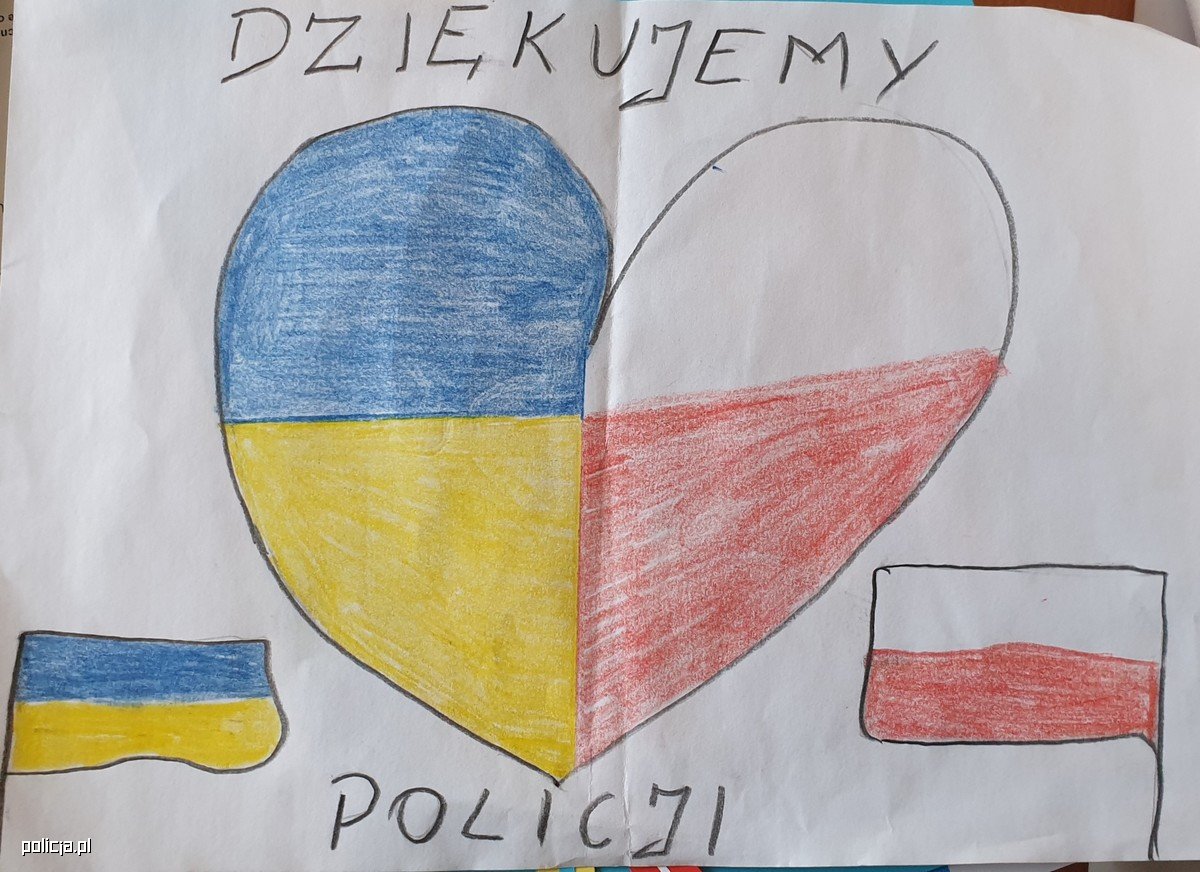 DZIĘKUJEMY
POLICJI
policja.pl